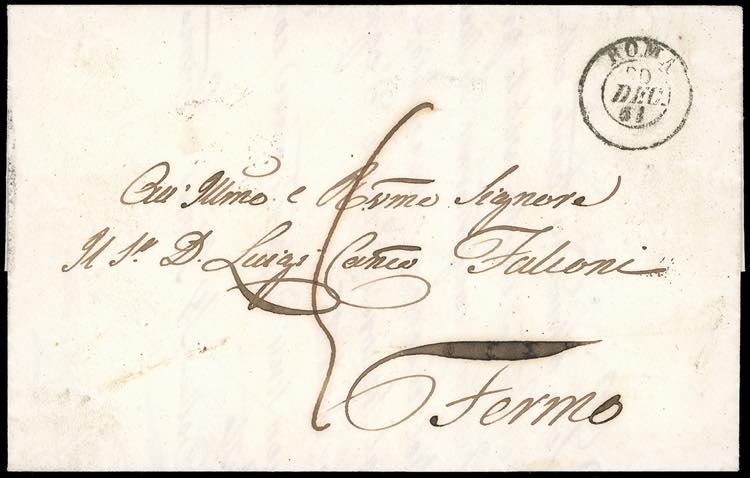 ROMA
20
DEC
51
All' Illmo e Rvmo Signore
Il Sr. D. Luigi Canco Falconi
Fermo